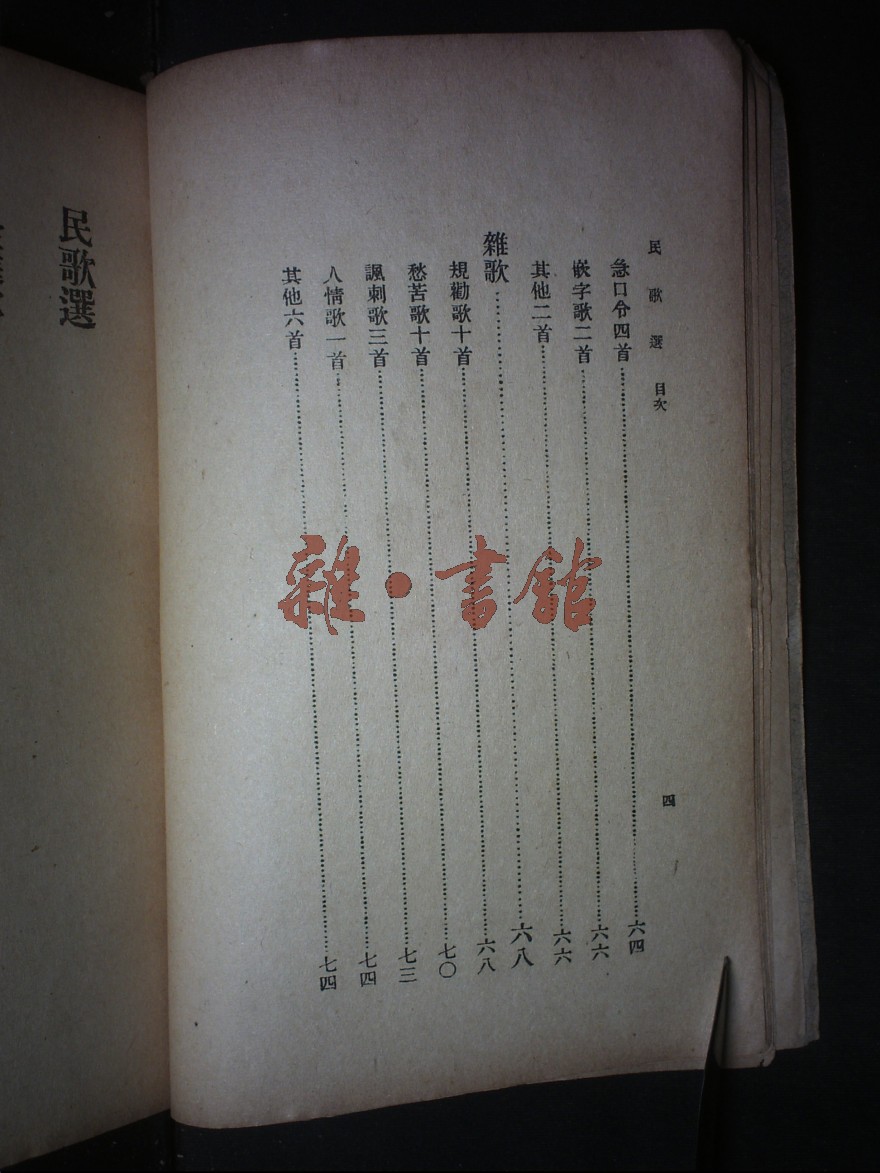 民歌選 目次 四
急口令四首……六四
嵌字歌二首……六六
其他二首……六六
雜歌……六八
規勸歌十首……六八
愁苦歌十首……七〇
諷刺歌三首……七三
人情歌一首……七四
其他六首……七四
民歌選
雜·書館